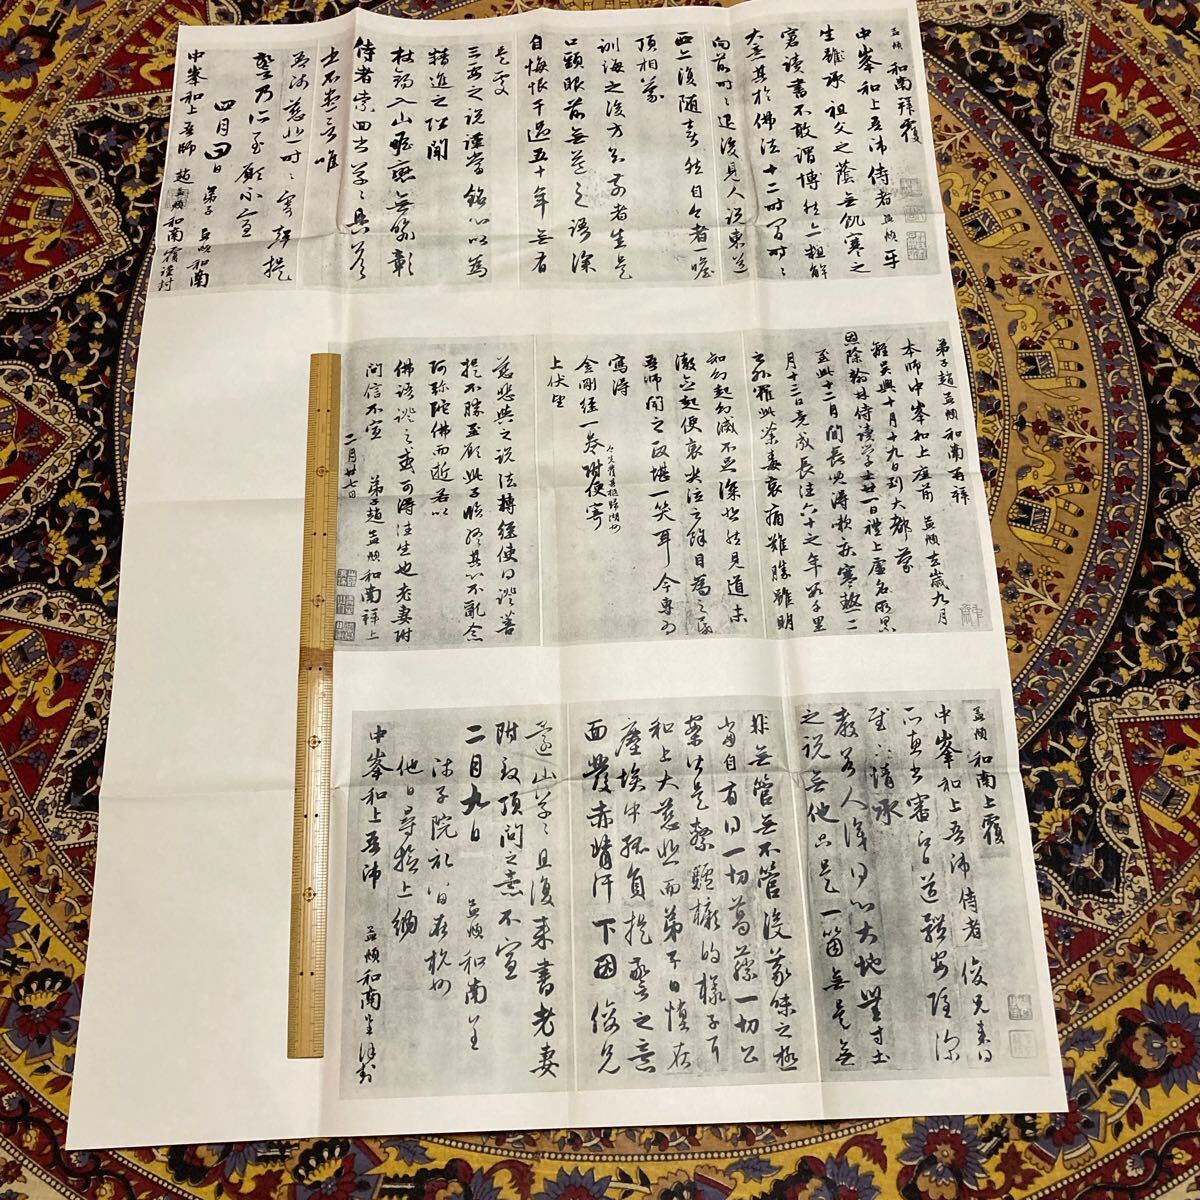 孟頫和南拜覆
中峯和上吾師侍者孟頫平
生雖承祖父之蔭無飢寒之
窘讀書不敢謂博然亦粗解
大意其於佛法十二時間時時
向前時時退後見人說東道
西亦復隨喜然自今者一瞻
頂相蒙
訓誨之後方知前者生是
口頭眼前無益之語深
自悔恨干過五十年無有
是處
三要之說謹當銘心以為
精進之階聞
杖錫入山瞻戀無喻彰
侍者索回書草草具答
書不盡言唯
吾師慈悲時時寄聲提
警乃仁至願不宣
四月四日弟子孟頫和南
中峯和上吾師 趙孟頫和南覆謹封
弟子趙孟頫和南再拜
本師中峯和上座前 孟頫去歲九月
離吳興十月十九日到大都蒙
恩除翰林侍讀學士廿一日禮上虛名所累
至此十二月間長兒得嗽疾寒熱二
月十三日竟成長往六十之年數千里
之外罹此荼毒哀痛難勝雖明
知幻起幻滅不足深悲然見道未
澈念起便哀哭泣之餘目為之昏
吾師聞之政堪一笑耳今專為
寫得
金剛經一卷附便寄
上伏望
慈悲與之說法轉經使得證菩
提不勝至願此子臨終其心不亂念
阿彌陀佛而逝若以
佛語證之或可得往生也老妻附
問信不宣
二月廿七日 弟子趙孟頫和南拜上
孟頫和南上覆
中峯和上吾師侍者俊兄來得
所惠書審即日道體安隱深
慰下情承
教若人識得心大地無寸土
之說無他只是一箇無是無
非無管無不管沒義味之極
當自有得一切葛藤一切公
案皆是繫驢橛的樣子耳
和上大慈悲而弟子日慎在
塵埃中孤負提警之意
面發赤背汗下因俊兄
還山草草且復來書老妻
附致頂問之意不宣
二月九日 孟頫和南上
師子院札留在杭州
他日尋檢上納
中峯和上吾師 孟頫和南